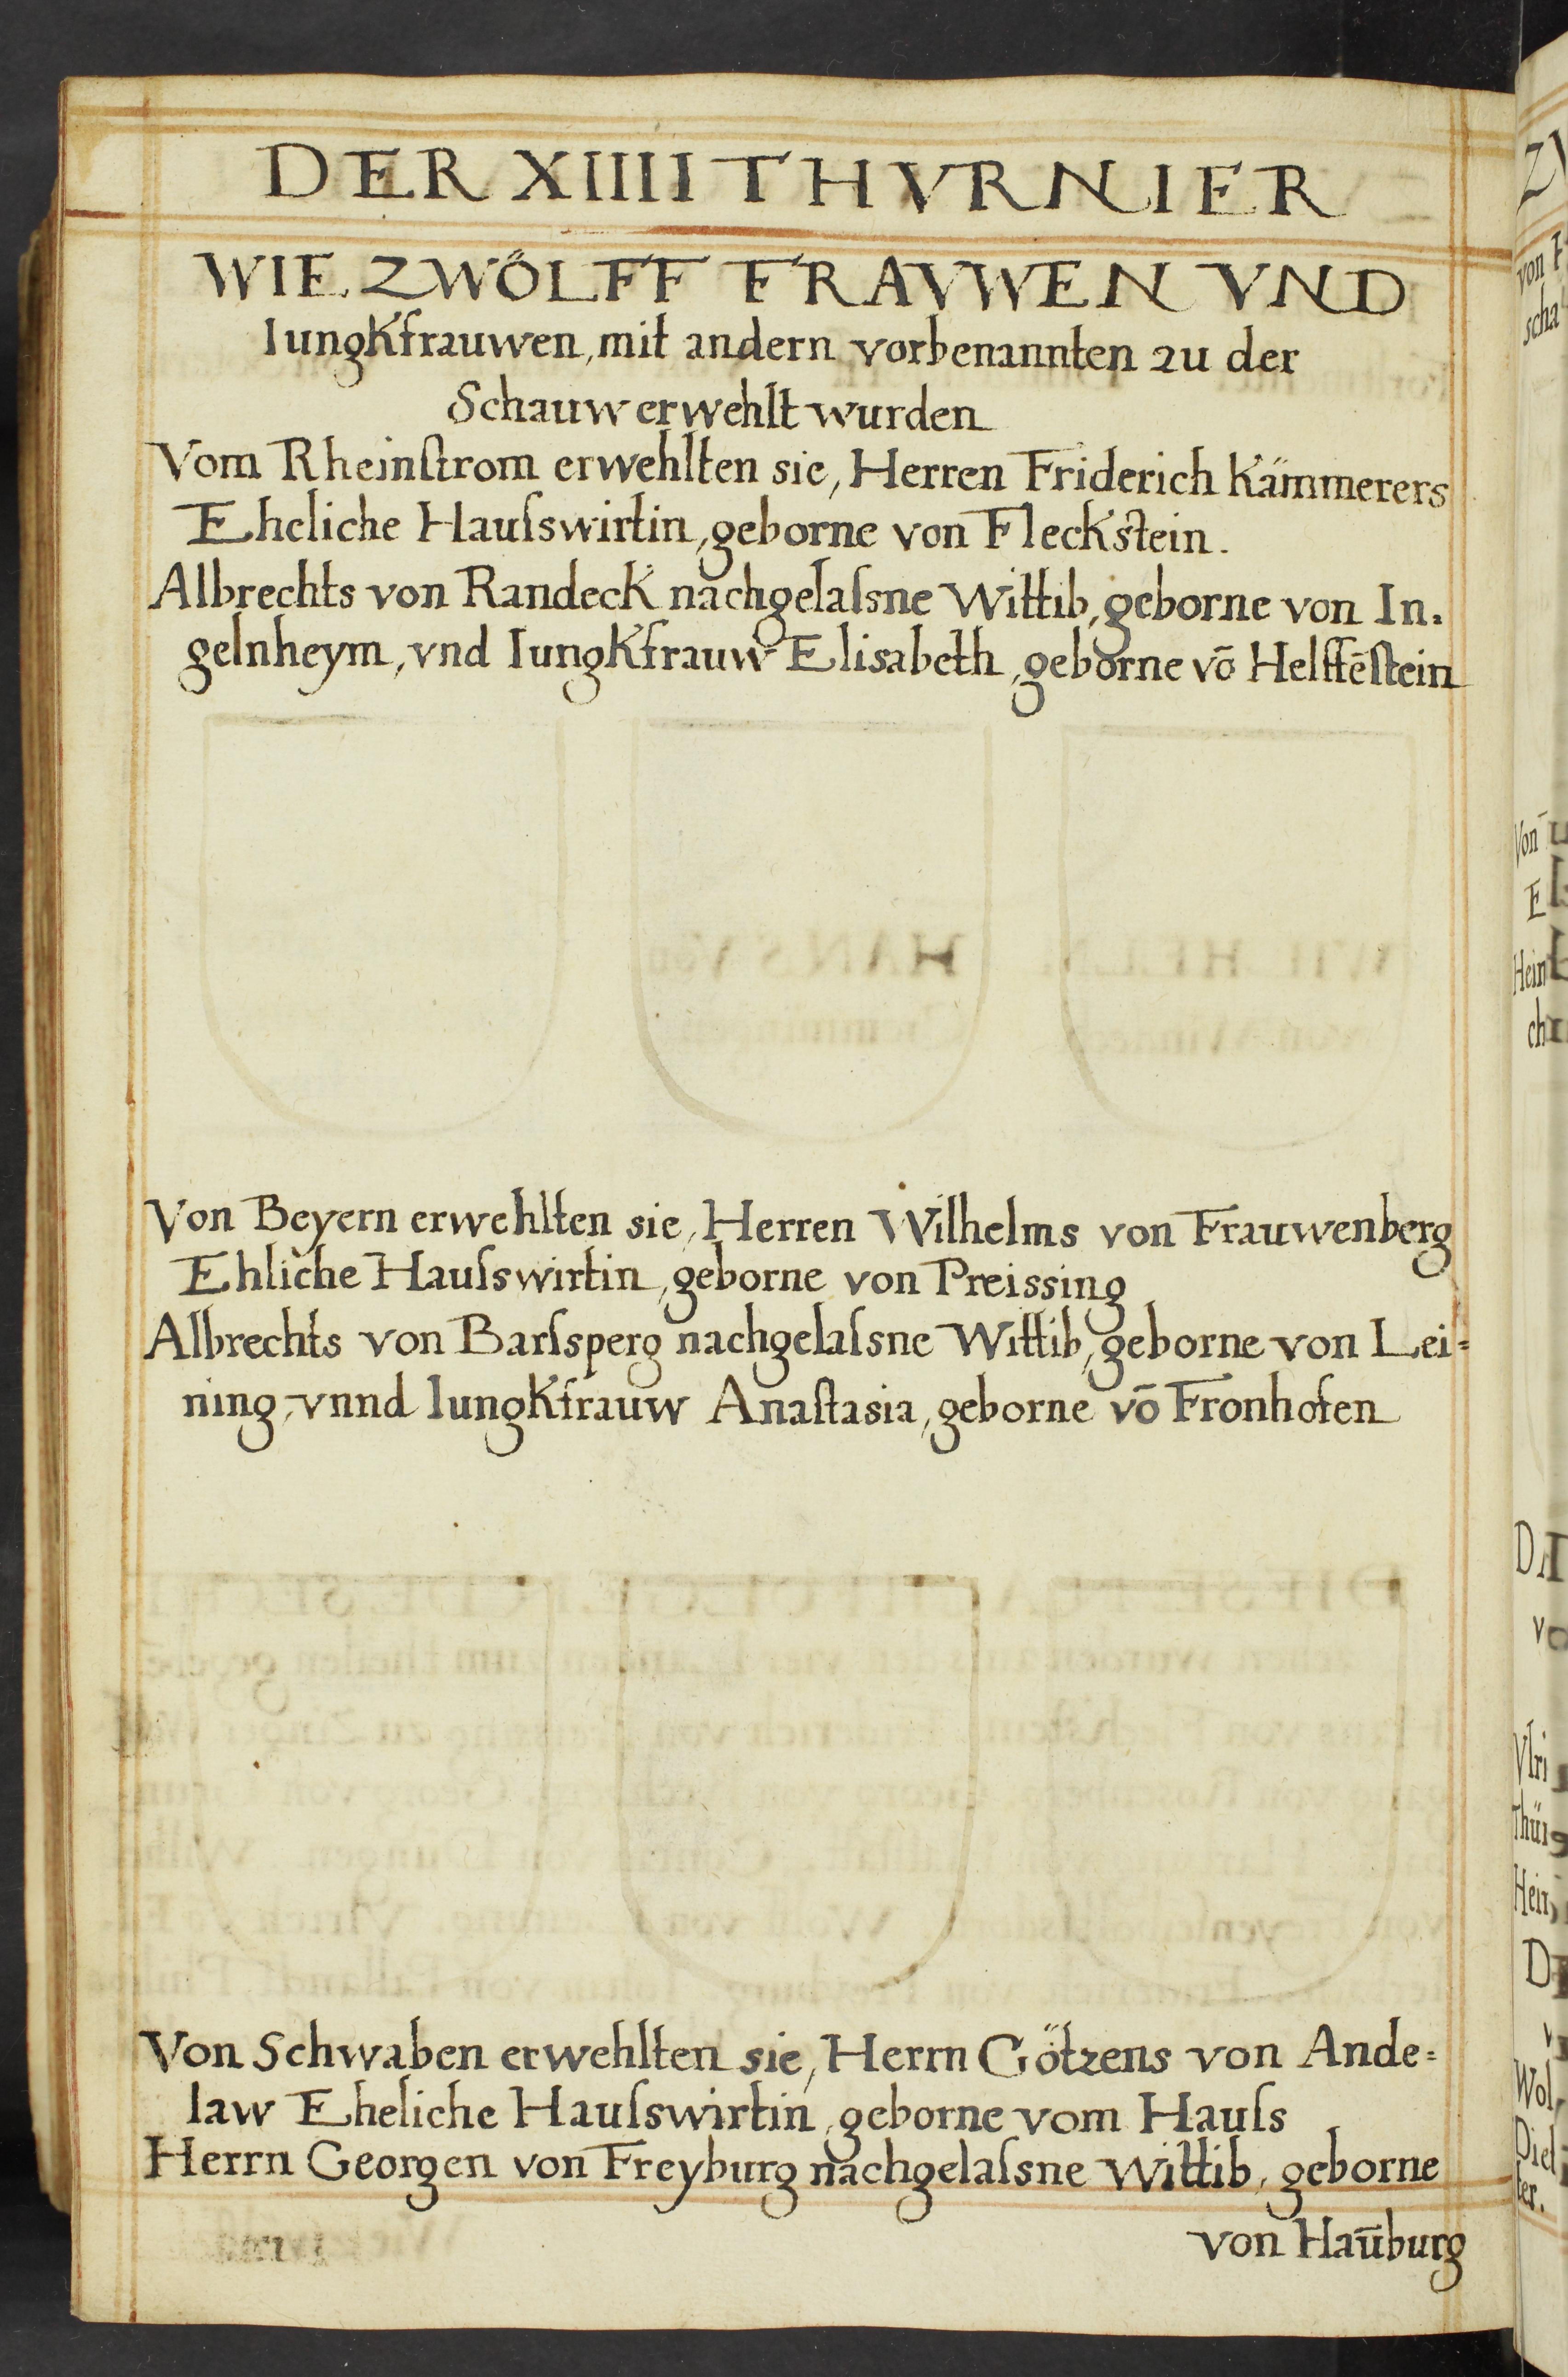 DER XIIIII THVRNIER
WIE ZWÖLFF FRAVWEN VND
Iungkfrauwen, mit andern vorbenannten zu der
Schauw erwehlt wurden
Vom Rheinſtrom erwehlten sie, Herren Friderich Kämmerers
Eheliche Hauſswirtin, geborne von Fleckstein.
Albrechts von Randeck nachgelaſsne Wittib, geborne von In.
gelnheym, vnd Iungkfrauw Elisabeth, geborne vō Helffēſtein
Von Beyern erwehlten sie, Herren Wilhelms von Frauwenberg
Ehliche Hauſswirtin, geborne von Preissing
Albrechts von Barſsperg nachgelaſsne Wittib, geborne von Lei-
ning, vnnd Iungkfrauw Anaſtasia, geborne vō Fronhofen
Von Schwaben erwehlten sie, Herrn Götzens von Ande-
law Eheliche Hauſswirtin, geborne vom Hauſs
Herrn Georgen von Freyburg nachgelaſsne Wittib, geborne
von Haūburg